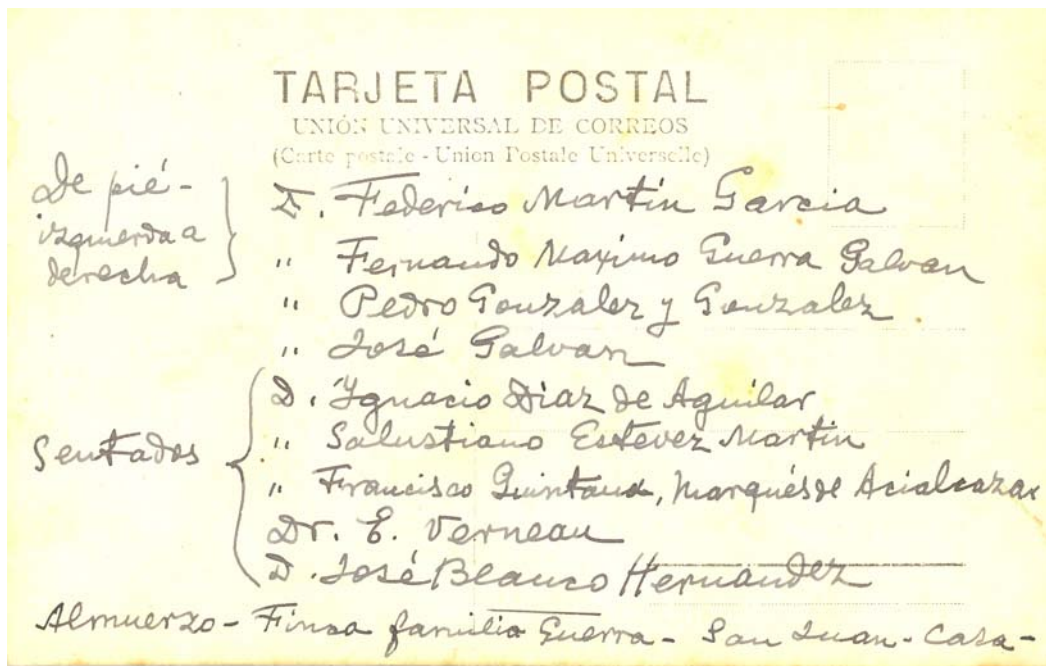 TARJETA POSTAL
UNIÓN UNIVERSAL DE CORREOS
(Carte postale - Union Postale Universelle)
De pié -
izquierda a
derecha
D. Federico Martín Garcia
" Fernando Maximo Guerra Galvan
" Pedro Gonzalez y Gonzalez
" José Galvan
Sentados
D. Ygnacio Diaz de Aguilar
" Salustiano Estévez Martin
" Francisco Quintana, Marqués de Acialcazar
Dr. E. Verneau
D. José Blanco Hernandez
Almuerzo - Finca familia Guerra - San Juan - Casa -